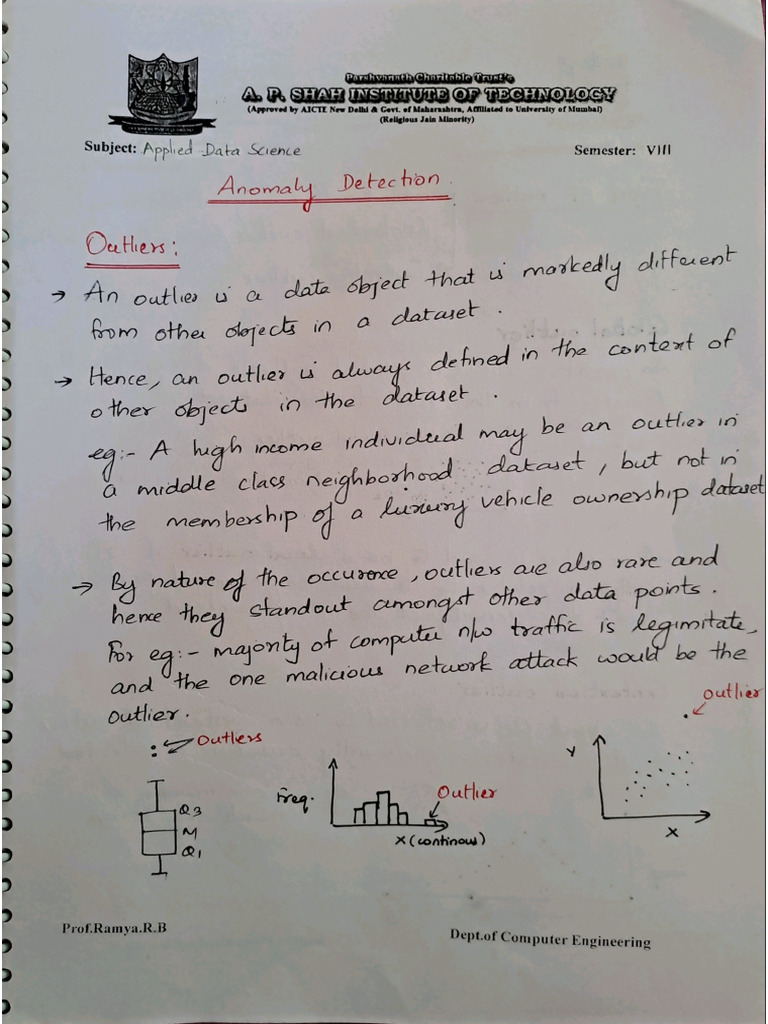 Parshvanath Charitable Trust's
A. P. SHAH INSTITUTE OF TECHNOLOGY
(Approved by AICTE New Delhi & Govt. of Maharashtra, Affiliated to University of Mumbai)
(Religious Jain Minority)
Subject: Applied Data Science Semester: VIII
Anomaly Detection.
Outliers:
→ An outlier is a data object that is markedly different
from other objects in a dataset.
→ Hence, an outlier is always defined in the context of
other objects in the dataset.
eg:- A high income individual may be an outlier in
a middle class neighborhood dataset, but not in
the membership of a luxury vehicle ownership dataset
→ By nature of the occurence, outliers are also rare and
hence they standout amongst other data points.
For eg:- majority of computer n/w traffic is legimitate,
and the one malicious network attack would be the
outlier.
Outliers
Q3
M
Q1
Freq.
Outlier
X (continous)
outlier
Y
X
Prof.Ramya.R.B
Dept.of Computer Engineering